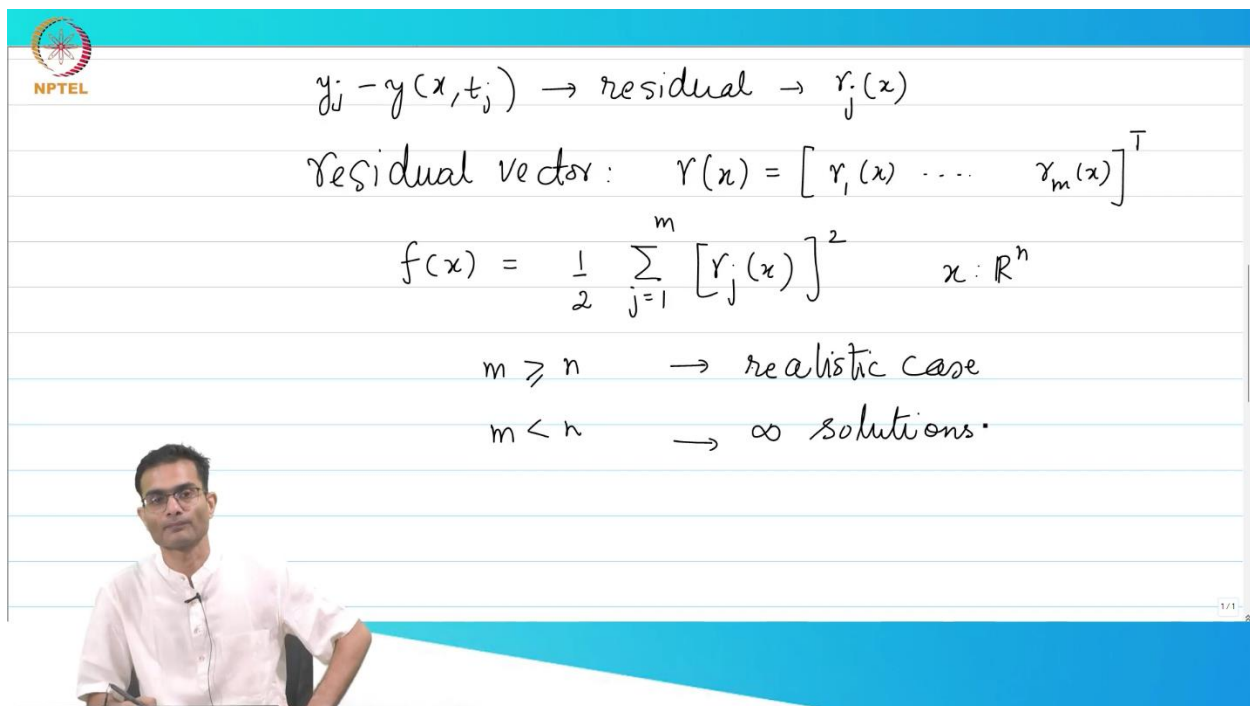 NPTEL
y_j - y(x, t_j) → residual → r_j(x)
residual vector: r(x) = [r_1(x) .... r_m(x)]^T
f(x) = 1/2 ∑_{j=1}^{m} [r_j(x)]^2 x: ℝ^n
m ⩾ n → realistic case
m < n → ∞ solutions.
1/1